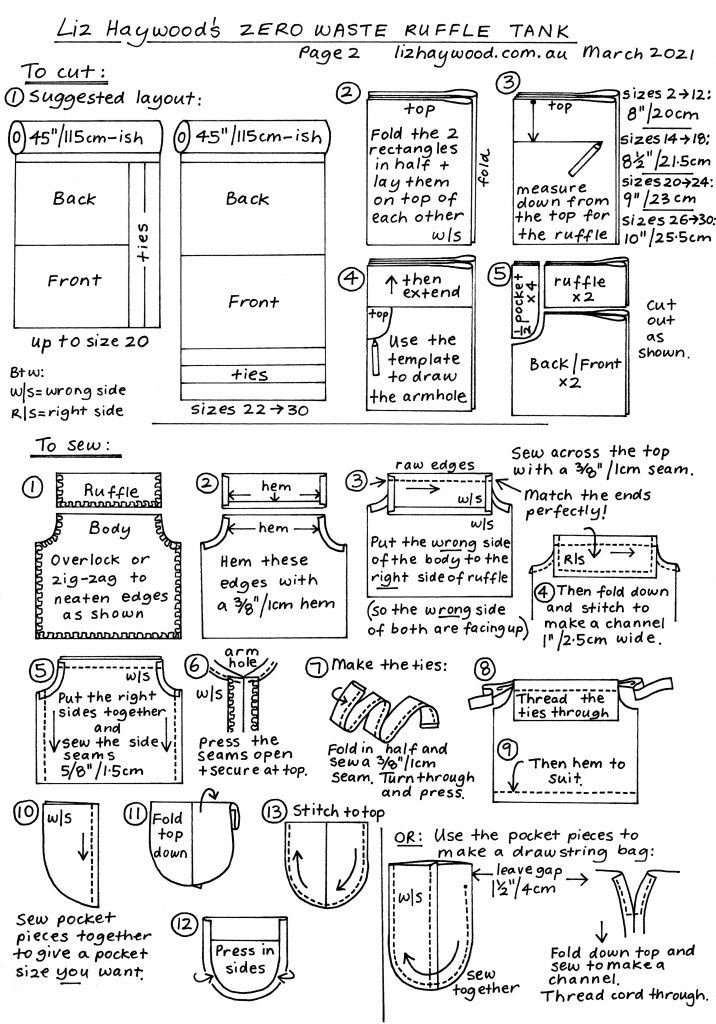 Liz Haywood's ZERO WASTE RUFFLE TANK
Page 2 lizhaywood.com.au March 2021
To cut:
① Suggested layout:
45"/115cm-ish
Back
Front
ties
up to size 20
45"/115cm-ish
Back
Front
ties
sizes 22→30
Btw:
W/S=wrong side
R/S=right side
②
top
Fold the 2
rectangles
in half +
lay them
on top of
each other
W/S
fold
③
top
measure
down from
the top for
the ruffle
sizes 2→12:
8"/20cm
sizes 14→18:
8½"/21.5cm
sizes 20→24:
9"/23 cm
sizes 26→30:
10"/25.5cm
④
↑ then
extend
top
Use the
template
to draw
the armhole
⑤
½ pocket
x 4
ruffle
x2
Back/Front
x2
cut
out
as
shown.
To sew:
①
Ruffle
Body
Overlock or
zig-zag to
neaten edges
as shown
②
hem
hem
Hem these
edges with
a 3/8"/1cm hem
③
raw edges
W/S
W/S
Put the wrong side
of the body to the
right side of ruffle
(so the wrong side
of both are facing up)
Sew across the top
with a 3/8"/1cm seam.
Match the ends
perfectly!
R/S
④ Then fold down
and stitch to
make a channel
1"/2.5cm wide.
⑤
W/S
Put the right
sides together
and
sew the side
seams
5/8"/1.5cm
⑥
arm
hole
W/S
Press the
seams open
+ secure at top.
⑦ Make the ties:
Fold in half and
sew a 3/8"/1cm
seam. Turn through
and press.
⑧
Thread the
ties through
⑨
Then hem to
suit.
⑩
W/S
Sew pocket
pieces together
to give a pocket
size you want.
⑪
Fold
top
down
⑫
Press in
sides
⑬ Stitch to top
OR: Use the pocket pieces to
make a drawstring bag:
leave gap
1½"/4cm
W/S
Sew
together
Fold down top and
sew to make a
channel.
Thread cord through.